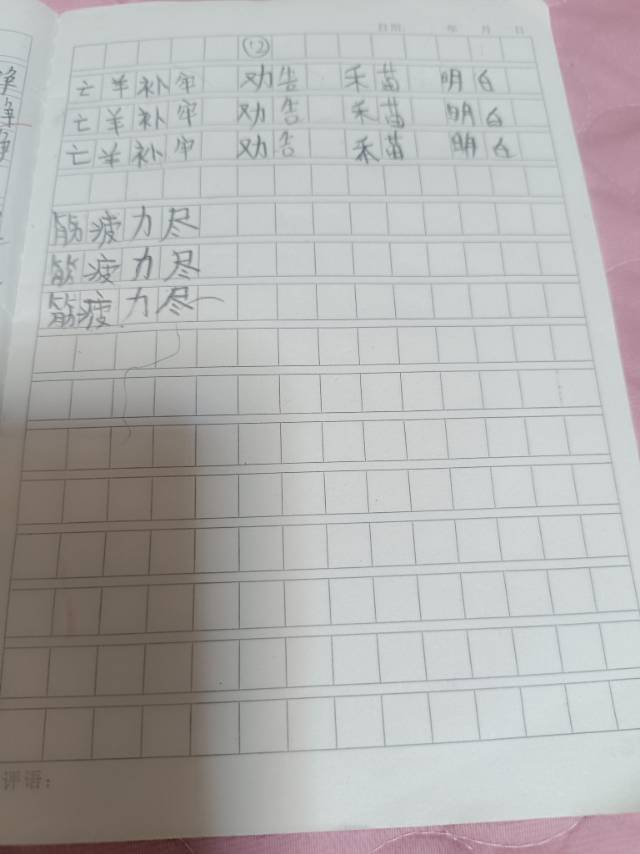 日期 年 月 日
(12)
亡羊补牢 劝告 禾苗 明白
亡羊补牢 劝告 禾苗 明白
亡羊补牢 劝告 禾苗 明白
筋疲力尽
筋疲力尽
筋疲力尽
评语：